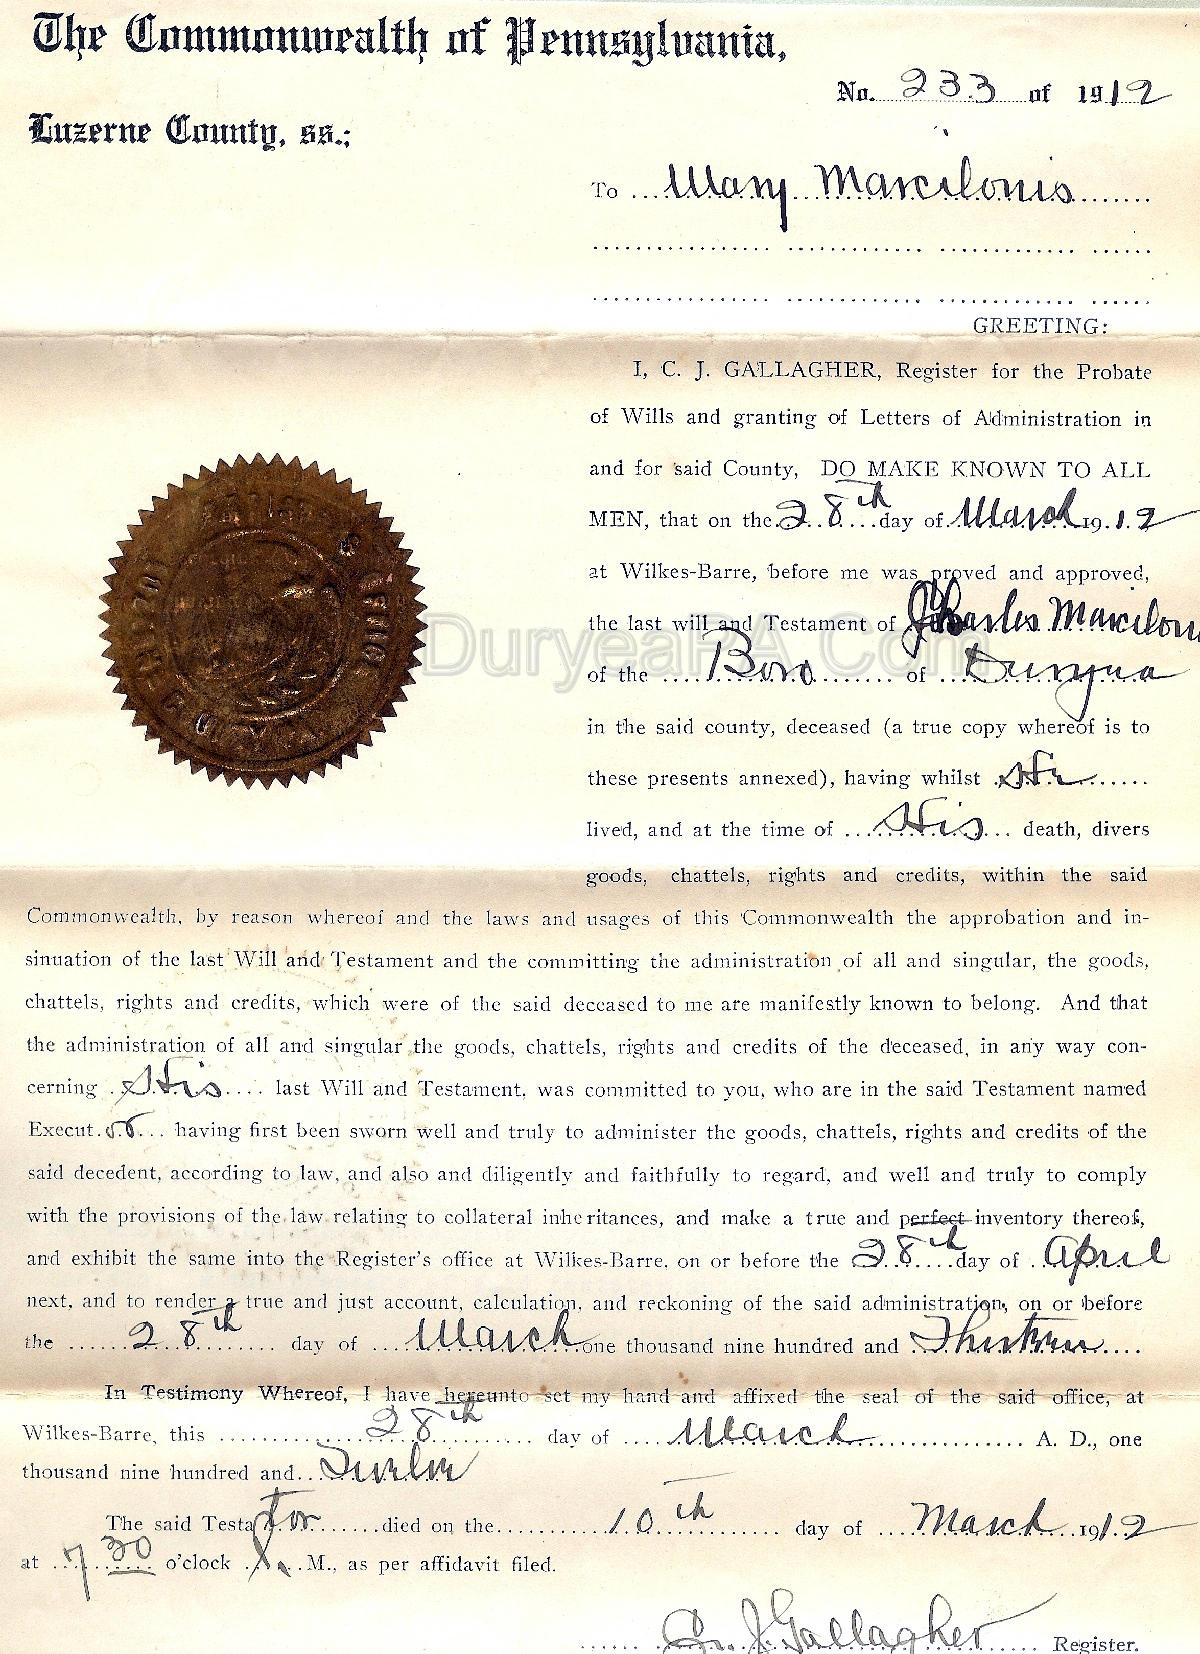 The Commonwealth of Pennsylvania,
No. 233 of 1912
Luzerne County, ss.;
To Mary Marcilonis
GREETING:
I, C. J. GALLAGHER, Register for the Probate
of Wills and granting of Letters of Administration in
and for said County, DO MAKE KNOWN TO ALL
MEN, that on the 28th day of March 1912
at Wilkes-Barre, before me was proved and approved,
the last will and Testament of Charles Marcilonis
of the Boro of Duryea
in the said county, deceased (a true copy whereof is to
these presents annexed), having whilst He
lived, and at the time of His death, divers
goods, chattels, rights and credits, within the said
Commonwealth, by reason whereof and the laws and usages of this Commonwealth the approbation and in-
sinuation of the last Will and Testament and the committing the administration of all and singular, the goods,
chattels, rights and credits, which were of the said deceased to me are manifestly known to belong. And that
the administration of all and singular the goods, chattels, rights and credits of the deceased, in any way con-
cerning His last Will and Testament, was committed to you, who are in the said Testament named
Execut having first been sworn well and truly to administer the goods, chattels, rights and credits of the
said decedent, according to law, and also and diligently and faithfully to regard, and well and truly to comply
with the provisions of the law relating to collateral inheritances, and make a true and perfect inventory thereof,
and exhibit the same into the Register's office at Wilkes-Barre, on or before the 28th day of April
next, and to render a true and just account, calculation, and reckoning of the said administration, on or before
the 28th day of March one thousand nine hundred and Thirteen
In Testimony Whereof, I have hereunto set my hand and affixed the seal of the said office, at
Wilkes-Barre, this 28th day of March A. D., one
thousand nine hundred and Twelve
The said Testator died on the 10th day of March 1912
at 7 30 o'clock M., as per affidavit filed.
C. J. Gallagher Register.
DuryeaPA.Com